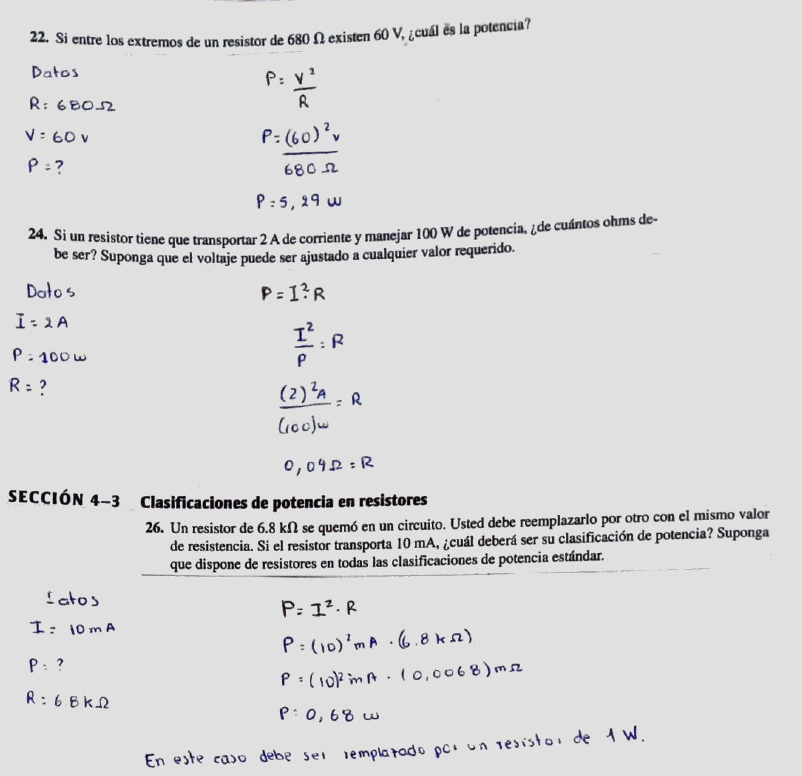 22. Si entre los extremos de un resistor de 680 Ω existen 60 V, ¿cuál es la potencia?
Datos
R: 680Ω
V = 60 v
P = ?
P: V²/R
P= (60)² v / 680 Ω
P = 5,29 w
24. Si un resistor tiene que transportar 2 A de corriente y manejar 100 W de potencia, ¿de cuántos ohms de-
be ser? Suponga que el voltaje puede ser ajustado a cualquier valor requerido.
Datos
I = 2 A
P = 100 w
R = ?
P = I²·R
I²/P = R
(2)² A / (100)w = R
0,04Ω = R
SECCIÓN 4–3 Clasificaciones de potencia en resistores
26. Un resistor de 6.8 kΩ se quemó en un circuito. Usted debe reemplazarlo por otro con el mismo valor
de resistencia. Si el resistor transporta 10 mA, ¿cuál deberá ser su clasificación de potencia? Suponga
que dispone de resistores en todas las clasificaciones de potencia estándar.
Datos
I = 10 mA
P: ?
R: 6.8 kΩ
P= I². R
P = (10)² mA · (6.8 kΩ)
P = (10)² mA · (0,0068) mΩ
P: 0,68 w
En este caso debe ser remplazado por un resistor de 1 W.